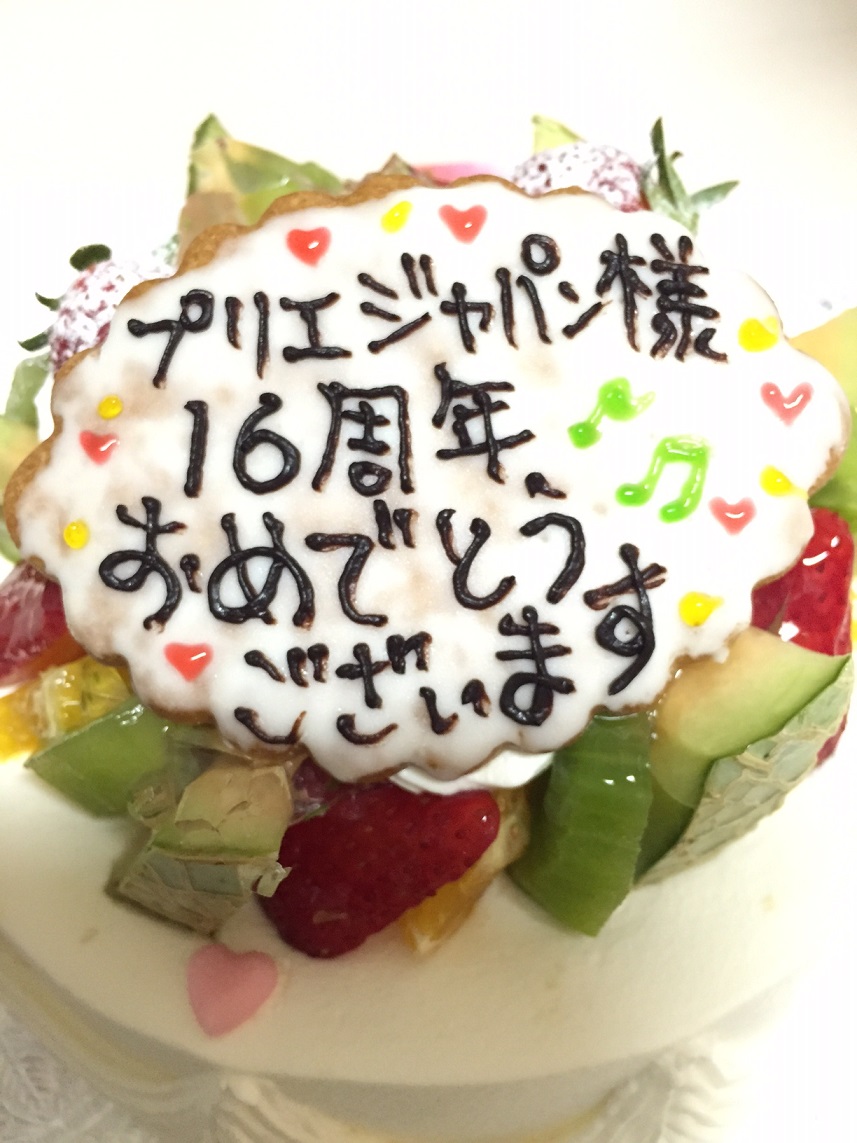 プリエジャパン様
16周年、
おめでとう
ございます